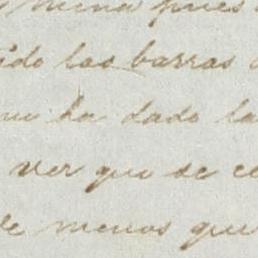 mina pues
ido las barras
que ha dado la
ver que se ce
de menos que